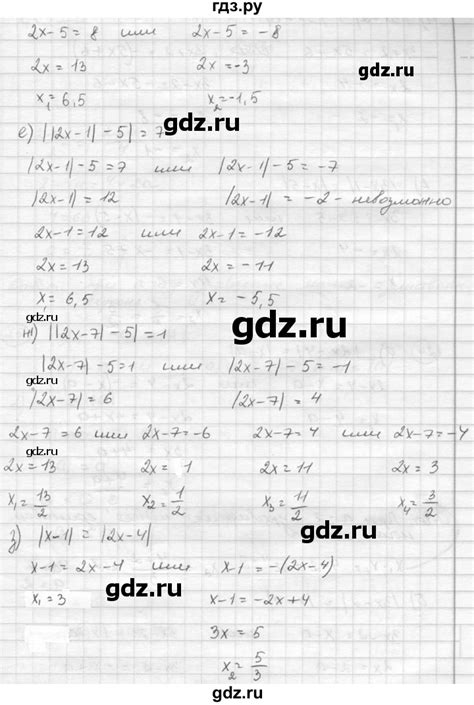 гдз.ру
2x-5=8 или 2x-5=-8
2x=13 2x=-3
x₁=6,5 x₂=-1,5
gdz.ru
е) ||2x-1|-5|=7
gdz.ru
|2x-1|-5=7 или |2x-1|-5=-7
|2x-1|=12 |2x-1|=-2 - невозможно
2x-1=12 или 2x-1=-12
2x=13 2x=-11
x=6,5 x=-5,5
gdz.ru
ж) ||2x-7|-5|=1
|2x-7|-5=1 или |2x-7|-5=-1
gdz.ru
|2x-7|=6 |2x-7|=4
2x-7=6 или 2x-7=-6 2x-7=4 или 2x-7=-4
2x=13 2x=1 2x=11 2x=3
gdz.ru
x₁=13/2 x₂=1/2 x₃=11/2 x₄=3/2
gdz.ru
з) |x-1|=|2x-4|
x-1=2x-4 или x-1=-(2x-4)
gdz.ru
x₁=3 x-1=-2x+4
3x=5
x₂=5/3
gdz.ru